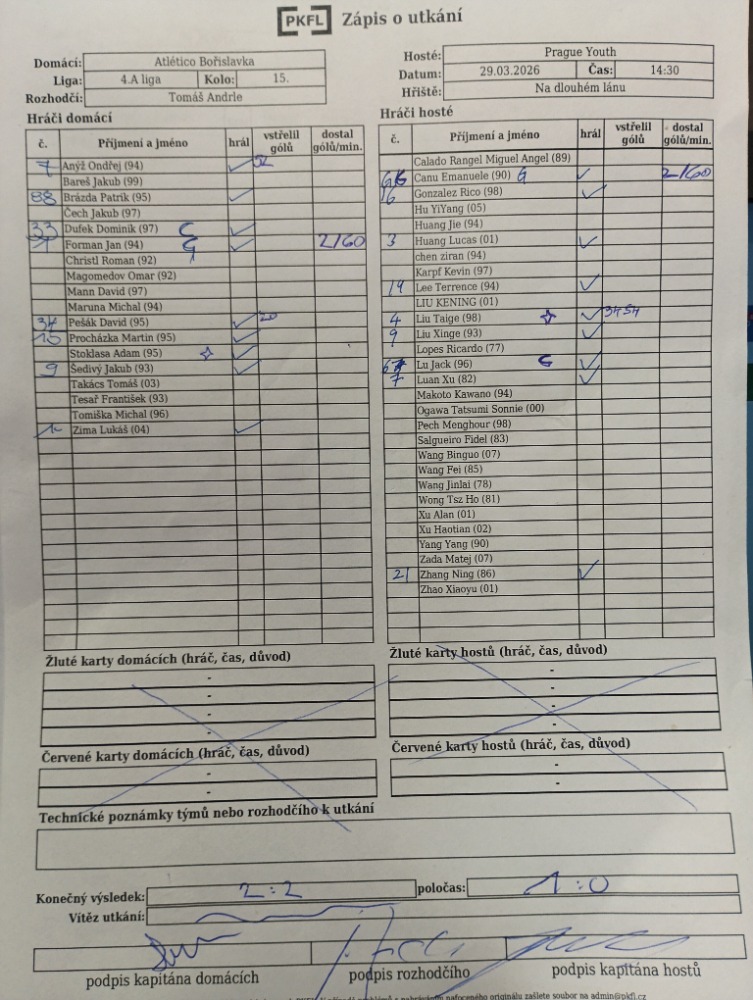 PKFL Zápis o utkání
Domácí: Atlético Bořislavka
Liga: 4.A liga Kolo: 15.
Rozhodčí: Tomáš Andrle
Hosté: Prague Youth
Datum: 29.03.2026 Čas: 14:30
Hřiště: Na dlouhém lánu
Hráči domácí
č. Příjmení a jméno hrál vstřelil gólů dostal gólů/min.
7 Anýž Ondřej (94) ✓ 52
Bareš Jakub (99)
88 Brázda Patrik (95) ✓
Čech Jakub (97)
33 Dufek Dominik (97) C ✓
Forman Jan (94) G ✓ 2/60
Christl Roman (92)
Magomedov Omar (92)
Mann David (97)
Maruna Michal (94)
Pešák David (95) ✓ 20
10 Procházka Martin (95) ✓
Stoklasa Adam (95) ✓
9 Šedivý Jakub (93) ✓
Takács Tomáš (03)
Tesař František (93)
Tomiška Michal (96)
Zima Lukáš (04) ✓
Hráči hosté
č. Příjmení a jméno hrál vstřelil gólů dostal gólů/min.
Calado Rangel Miguel Angel (89)
Canu Emanuele (90) G ✓ 2/60
16 Gonzalez Rico (98) ✓
Hu YiYang (05)
Huang Jie (94)
3 Huang Lucas (01) ✓
chen ziran (94)
Karpf Kevin (97)
19 Lee Terrence (94) ✓
LIU KENING (01)
4 Liu Taige (98) ✓ 34 54
9 Liu Xinge (93) ✓
Lopes Ricardo (77)
Lu Jack (96) C ✓
7 Luan Xu (82) ✓
Makoto Kawano (94)
Ogawa Tatsumi Sonnie (00)
Pech Menghour (98)
Salgueiro Fidel (83)
Wang Binguo (07)
Wang Fei (85)
Wang Jinlai (78)
Wong Tsz Ho (81)
Xu Alan (01)
Xu Haotian (02)
Yang Yang (90)
Zada Matej (07)
21 Zhang Ning (86) ✓
Zhao Xiaoyu (01)
Žluté karty domácích (hráč, čas, důvod)
-
-
-
-
Červené karty domácích (hráč, čas, důvod)
-
-
Žluté karty hostů (hráč, čas, důvod)
-
-
-
-
Červené karty hostů (hráč, čas, důvod)
-
-
Technické poznámky týmů nebo rozhodčího k utkání
Konečný výsledek: 2:2 poločas: 1:0
Vítěz utkání:
podpis kapitána domácích podpis rozhodčího podpis kapitána hostů
zašlete soubor na admin@pkfl.cz